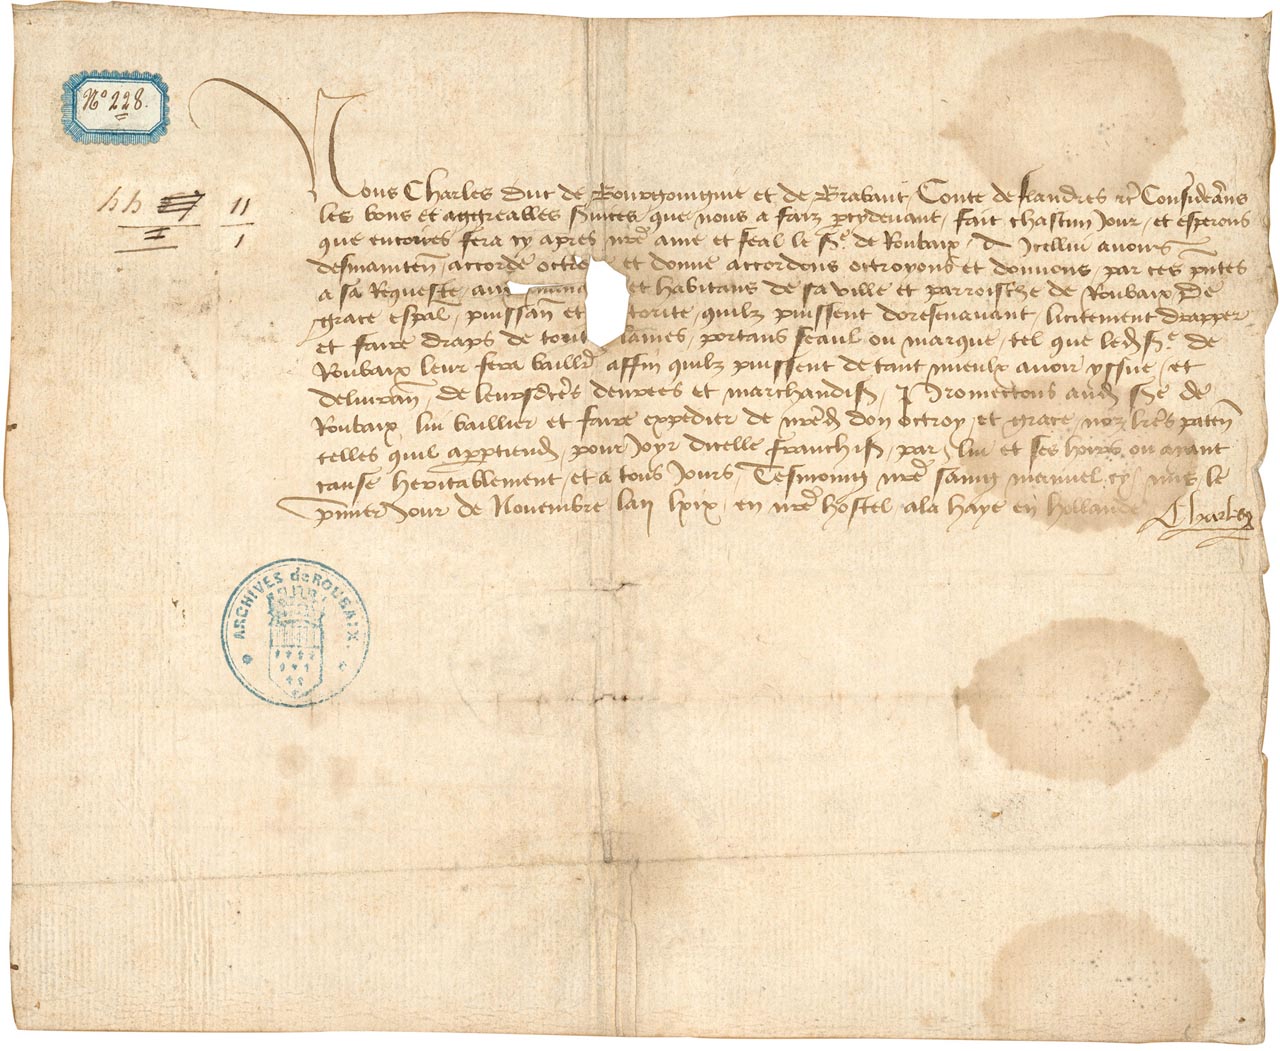 N° 228.
Nous Charles Duc de Bourgoingne et de Brabant, Conte de flandres etc Considerans
les bons et aggreables s̃uices, que nous a faiz p̃cydeuant, fait chascun Jour, et esperons
que encoires fera cy apres nr̃e ame et feal le sr̃ de Roubaix, A Icellui auons
desmainten̄, accordé octro et donné accordons octroyons et donnons, par ces pñtes
a sa Requeste, aux et habitans de sa ville et parroisse de Roubaix De
grace esp̃al, puissan̄ et torité, quilz puissent doresenauant, licitement drapper
et faire draps de tout laines, portans seaul ou marque, tel que led̃ sr̃ de
Roubaix leur fera baillr̃ affin quilz puissent de tant mieulx auoir yssue, et
deliuran̄, de leursd̃es denrees et marchandis̃, Promectons aud̃ sr̃ de
Roubaix, lui baillier et faire expedier de nr̃ed̃ don octroy, et grace, noz lr̃es paten̄
telles quil app̃tiend̃, pour Joyr dicelle franchis̃, par lui et ses hoirs ou ayant
cause heritablement, et a tous Jours, Tesmoing nr̃e saing manuel cy, mis le
p̃mier Jour de Nouembre lan lxix, en nr̃e hostel a la haye en hollande Charles
ARCHIVES de ROUBAIX